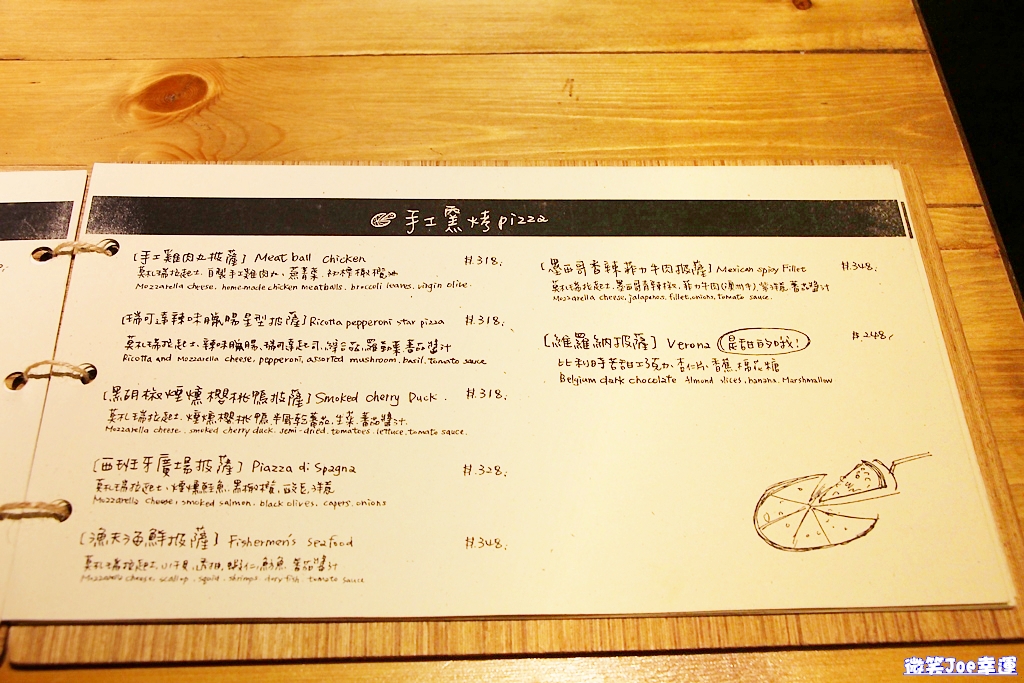 手工窯烤pizza
[手工雞肉丸披薩] Meat ball Chicken #.318.
莫札瑞拉起士.自製手工雞肉丸.蕪菁葉.初榨橄欖油
Mozzarella cheese, home-made chicken meatballs, broccoli leaves, virgin olive.
[瑞可達辣味臘腸星型披薩] Ricotta pepperoni star pizza #.318.
莫札瑞拉起士.辣味臘腸.瑞可達起司.綜合菇.羅勒葉.蕃茄醬汁
Ricotta and Mozzarella cheese, pepperoni, assorted mushroom, basil, tomato sauce
[黑胡椒煙燻櫻桃鴨披薩] Smoked cherry Duck. #.318.
莫札瑞拉起士.煙燻櫻桃鴨.半風乾蕃茄.生菜.蕃茄醬汁.
Mozzarella cheese. smoked cherry duck. semi-dried. tomatoes. lettuce. tomato sauce.
[西班牙廣場披薩] Piazza di Spagna #.328.
莫札瑞拉起士.煙燻鮭魚.黑橄欖.酸豆.洋蔥
Mozzarella Cheese, smoked salmon, black olives, capers, onions
[漁夫海鮮披薩] Fishermen's seafood #.348.
莫札瑞拉起士.小干貝.透抽.蝦仁.魴魚.蕃茄醬汁
Mozzarella cheese, scallop. squid. shrimps. dory fish. tomato sauce
[墨西哥香辣菲力牛肉披薩] Mexican spicy Fillet #.348.
莫札瑞拉起士.墨西哥青辣椒.菲力牛肉(澳州牛).紫洋蔥.蕃茄醬汁
Mozzarella cheese, jalapenos, fillet, onions, tomato sauce.
[維羅納披薩] Verona 是甜的哦! #.248.
比利時苦甜巧克力.杏仁片.香蕉.棉花糖
Belgium dark chocolate Almond slices, banana, Marshmallow
微笑Joe幸運